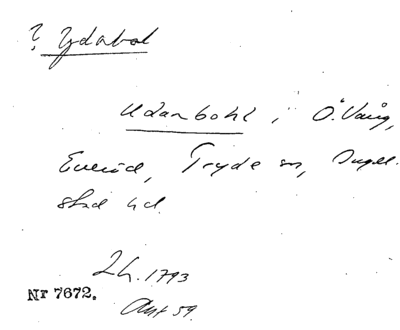 ? Ydabol
Udanbohl, Ö. Vång,
Everöd, Tryde sn, Ingel-
stad hd.
Lh. 1793
Nr 7672.
Akt 59